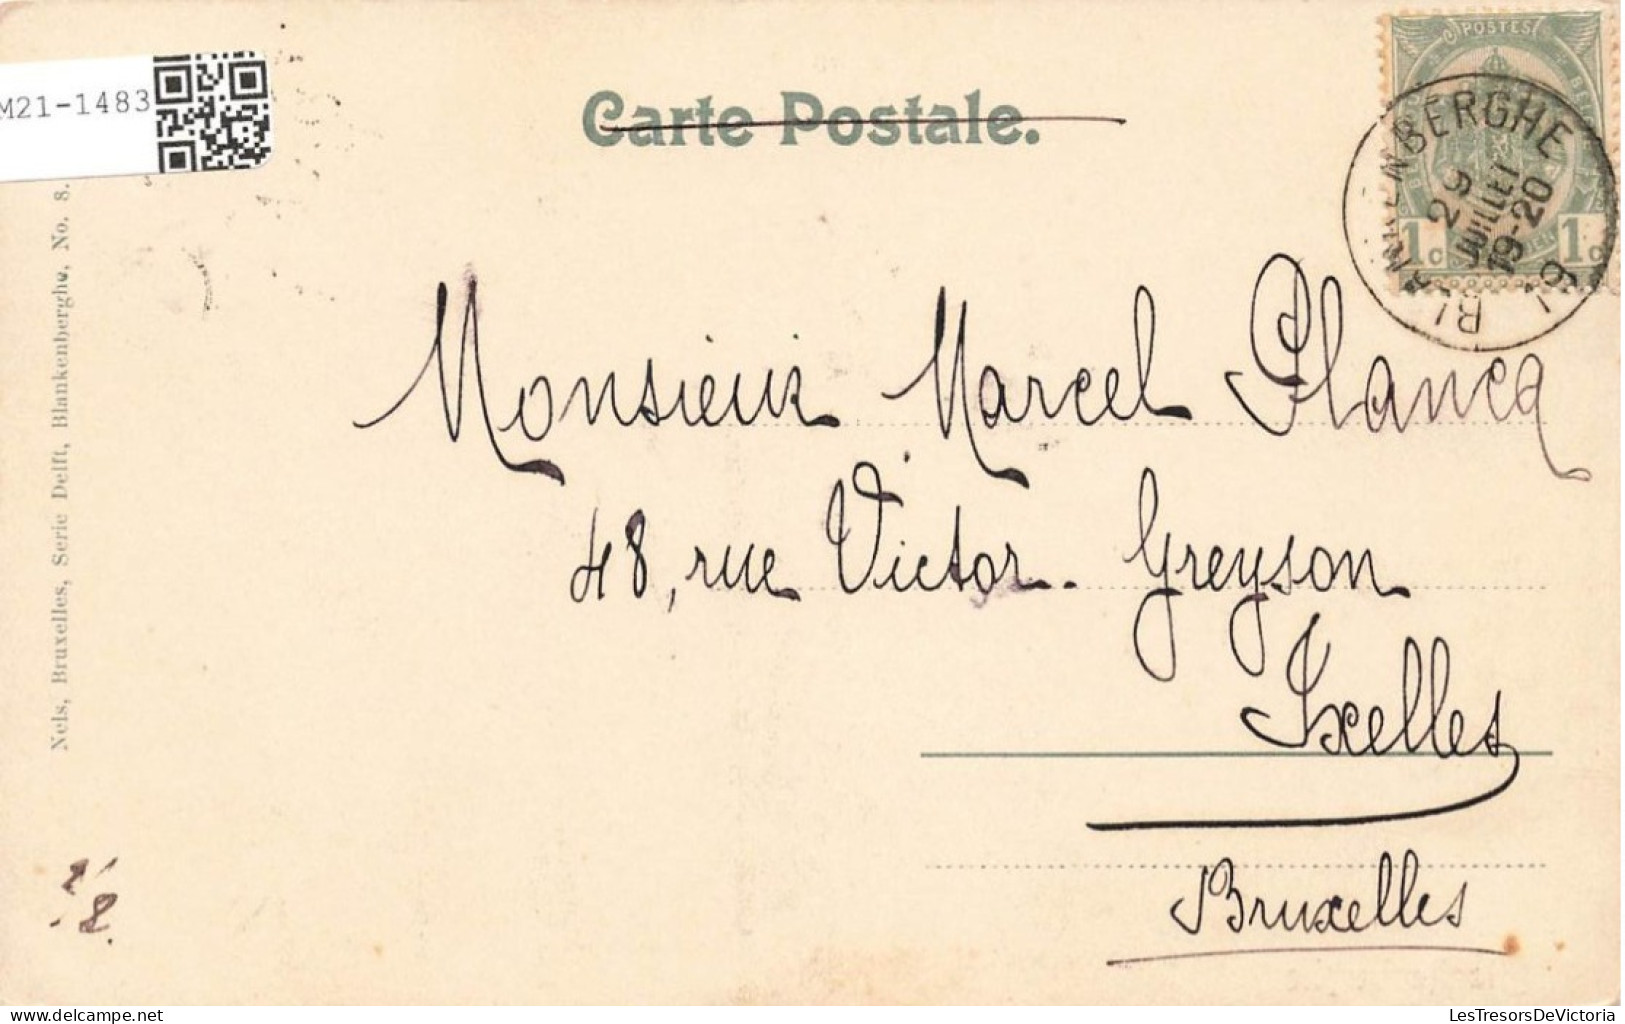 M21-1483
Carte Postale.
POSTES
1c 1c
BLANKENBERGHE
29
JUILLET
19-20
Nels, Bruxelles, Serie Delft, Blankenberghe, No. 8.
Monsieur Marcel Plancq
48, rue Victor Greyson
Ixelles
Bruxelles
LesTresorsDeVictoria